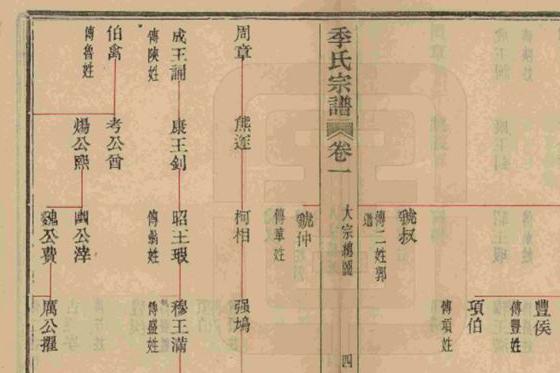 豐侯
傳豐姓
項伯
傳項姓
虢叔
傳二姓郭
季氏宗譜
卷一
大宗總圖
四
虢仲
傳華姓
周章
熊遂
柯相
强鳩
成王誦
傳陝姓
康王釗
昭王瑕
傳翁姓
穆王滿
傳盛姓
伯禽
傳魯姓
考公酋
煬公熙
國公滓
魏公費
厲公擢